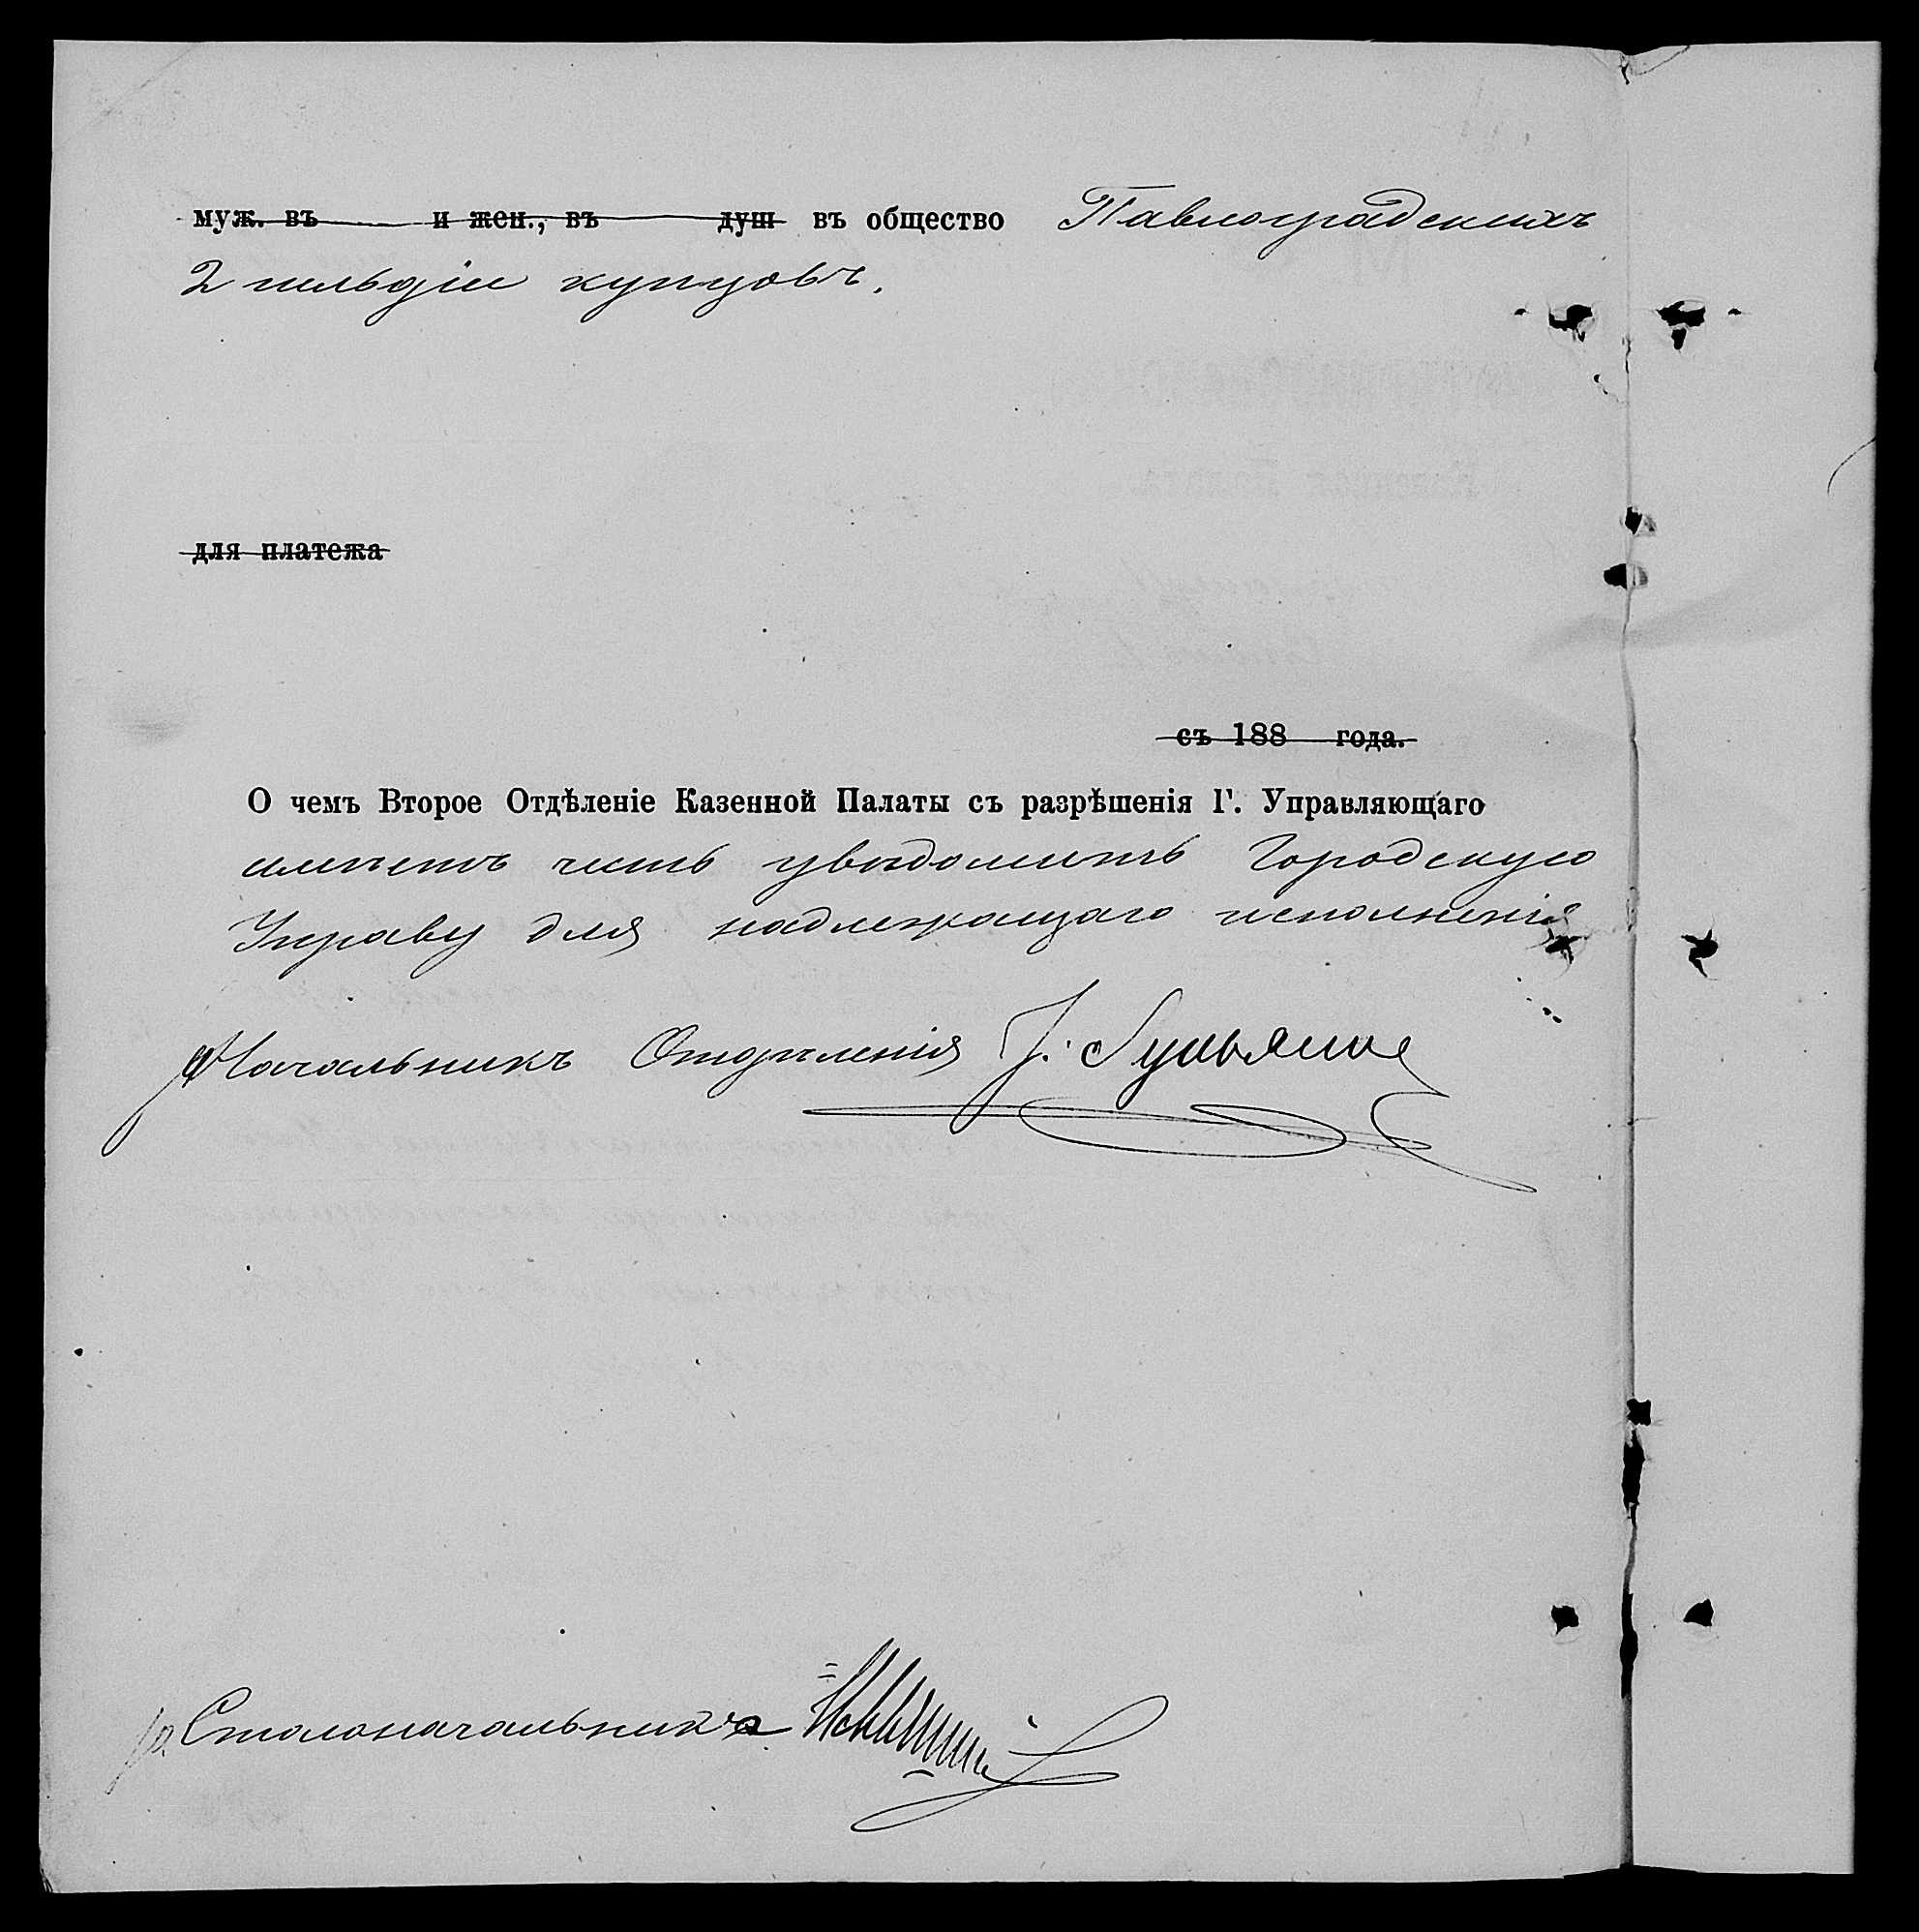 муж. въ и жен., въ душ въ общество Павлоградскихъ
2 гильдіи купцовъ.
для платежа
съ 188 года.
О чемъ Второе Отдѣленіе Казенной Палаты съ разрѣшенія Г. Управляющаго
имѣетъ честь увѣдомить Городскую
Управу для надлежащаго исполненія
Начальникъ Отдѣленія
Столоначальника